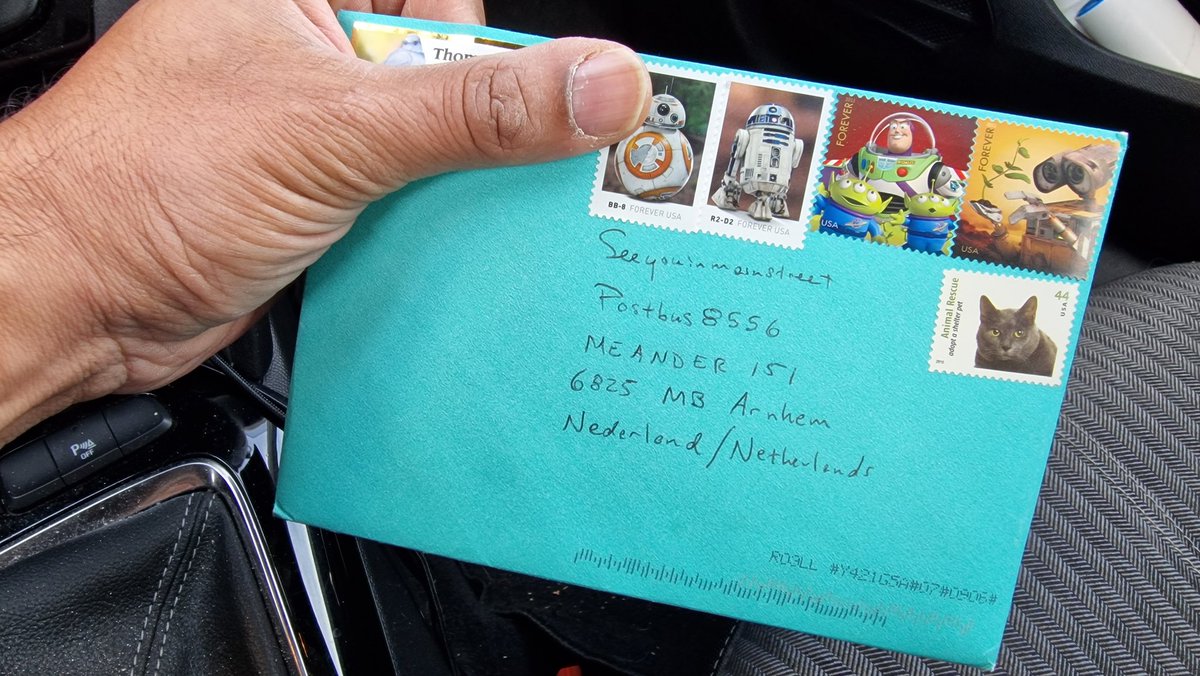 Thom
BB-8 FOREVER USA
R2-D2 FOREVER USA
FOREVER
USA
FOREVER
USA
Animal Rescue
adopt a shelter pet
44
USA
Seeyouinmainstreet
Postbus 8556
MEANDER 151
6825 MB Arnhem
Nederland/Netherlands
RD3LL #Y421G5A#07#0806#
P
OFF